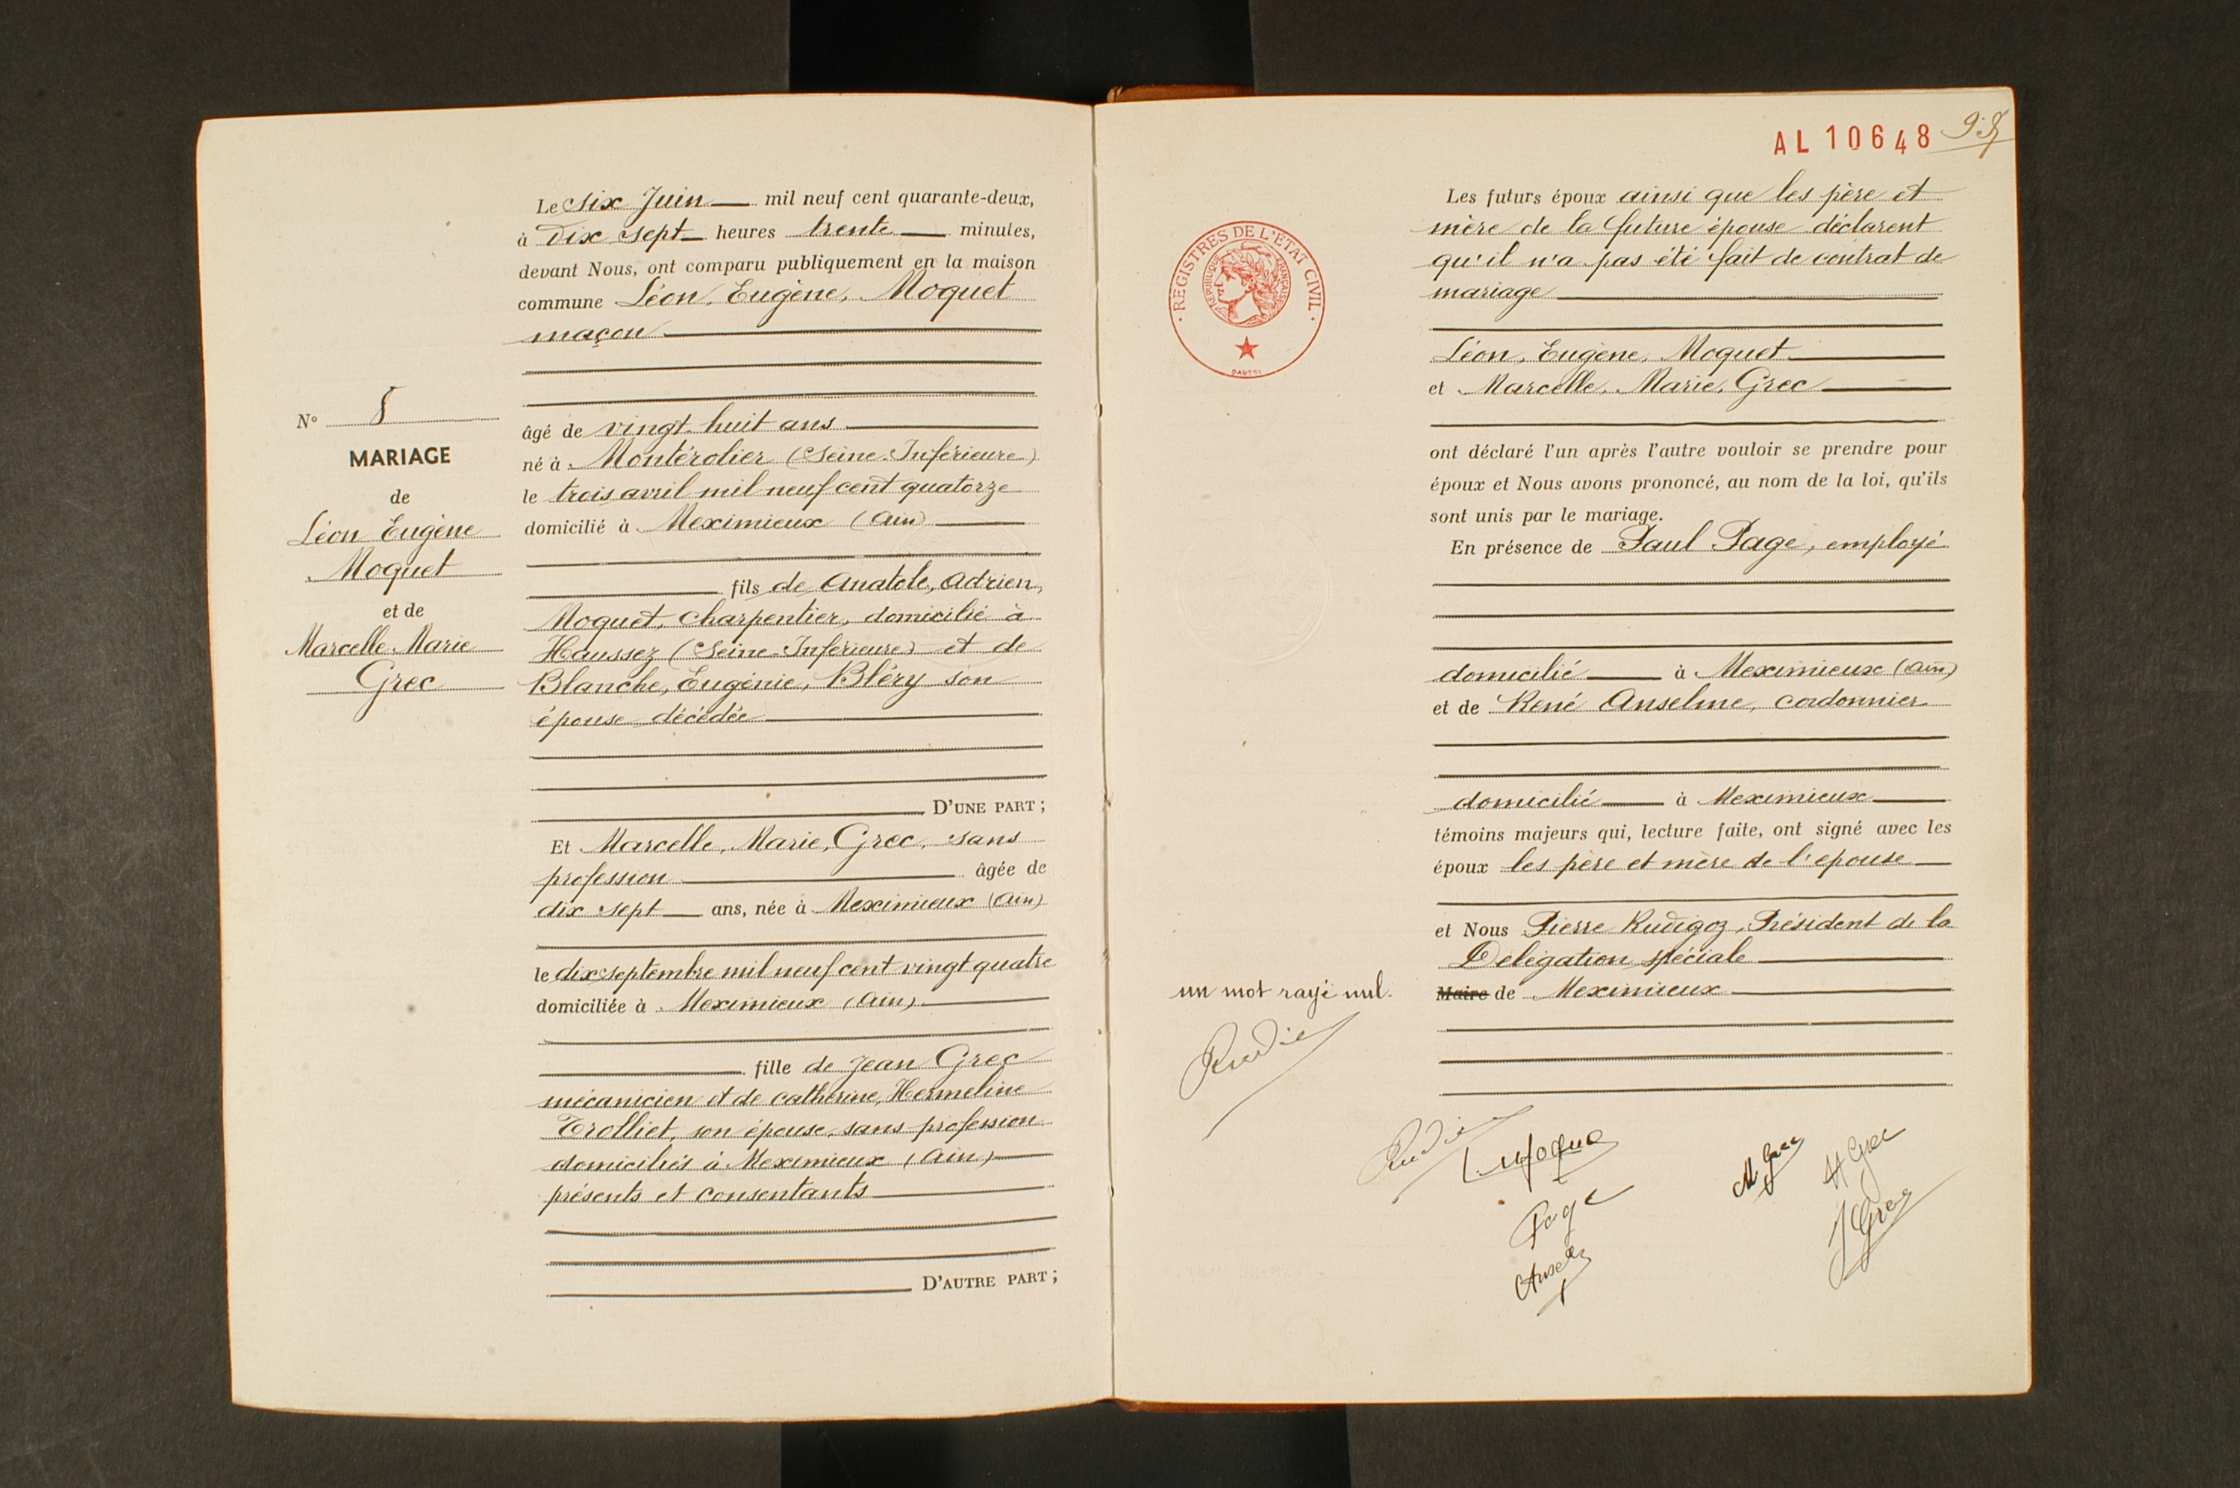 Le six Juin mil neuf cent quarante-deux,
à Dix sept heures trente minutes,
devant Nous, ont comparu publiquement en la maison
commune Léon, Eugène, Moquet
maçon
âgé de vingt-huit ans
né à Montérolier (Seine-Inférieure)
le trois avril mil neuf cent quatorze
domicilié à Meximieux (Ain)
fils de Anatole, Adrien,
Moquet, charpentier, domicilié à
Haussez (Seine-Inférieure) et de
Blanche, Eugénie, Bléry son
épouse décédée
D'UNE PART ;
Et Marcelle, Marie, Grec, sans
profession âgée de
dix sept ans, née à Meximieux (Ain)
le dix septembre mil neuf cent vingt quatre
domiciliée à Meximieux (Ain)
fille de Jean Grec
mécanicien et de catherine, Hermeline
Trolliet, son épouse, sans profession
domiciliés à Meximieux (Ain)
présents et consentants
D'AUTRE PART ;
N° 8
MARIAGE
de
Léon Eugène
Moquet
et de
Marcelle Marie
Grec
AL 10648
REGISTRES DE L'ETAT CIVIL
REPUBLIQUE FRANÇAISE
Les futurs époux ainsi que les père et
mère de la future épouse déclarent
qu'il n'a pas été fait de contrat de
mariage
Léon, Eugène, Moquet
et Marcelle, Marie, Grec
ont déclaré l'un après l'autre vouloir se prendre pour
époux et Nous avons prononcé, au nom de la loi, qu'ils
sont unis par le mariage.
En présence de Paul Page, employé
domicilié à Meximieux (Ain)
et de René Anselme, cordonnier
domicilié à Meximieux
témoins majeurs qui, lecture faite, ont signé avec les
époux les père et mère de l'epouse
et Nous Pierre Rudigoz, Président de la
Délégation spéciale
Maire de Meximieux
un mot rayé nul.
L Moque
Page
M Grec
H Grec
J Grec